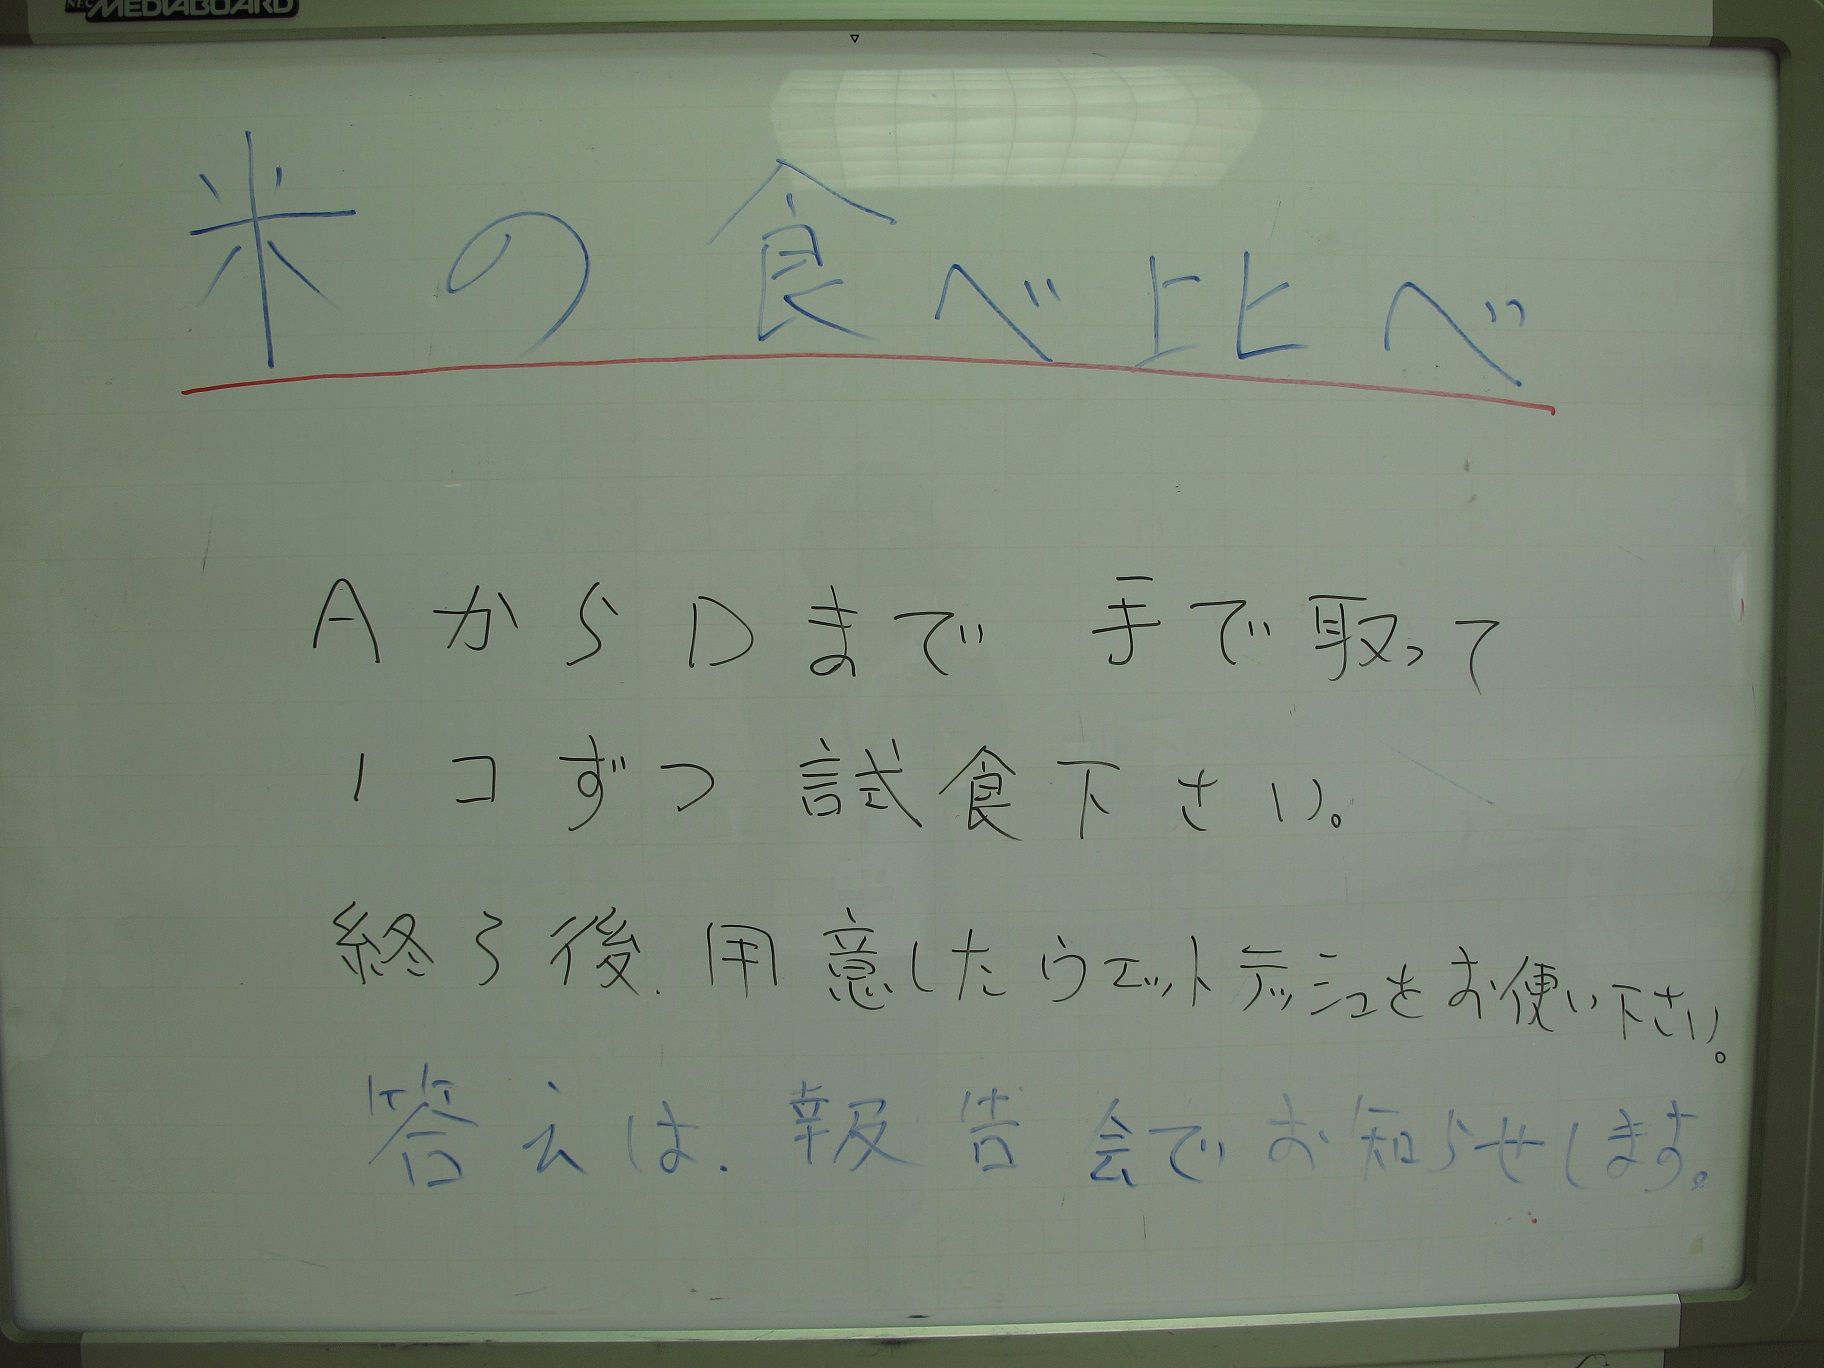 NEC MEDIABOARD
米の食べ比べ
AからDまで 手で取って
1コずつ試食下さい。
終了後、用意したウエットテッシュをお使い下さい。
答えは、報告会でお知らせします。